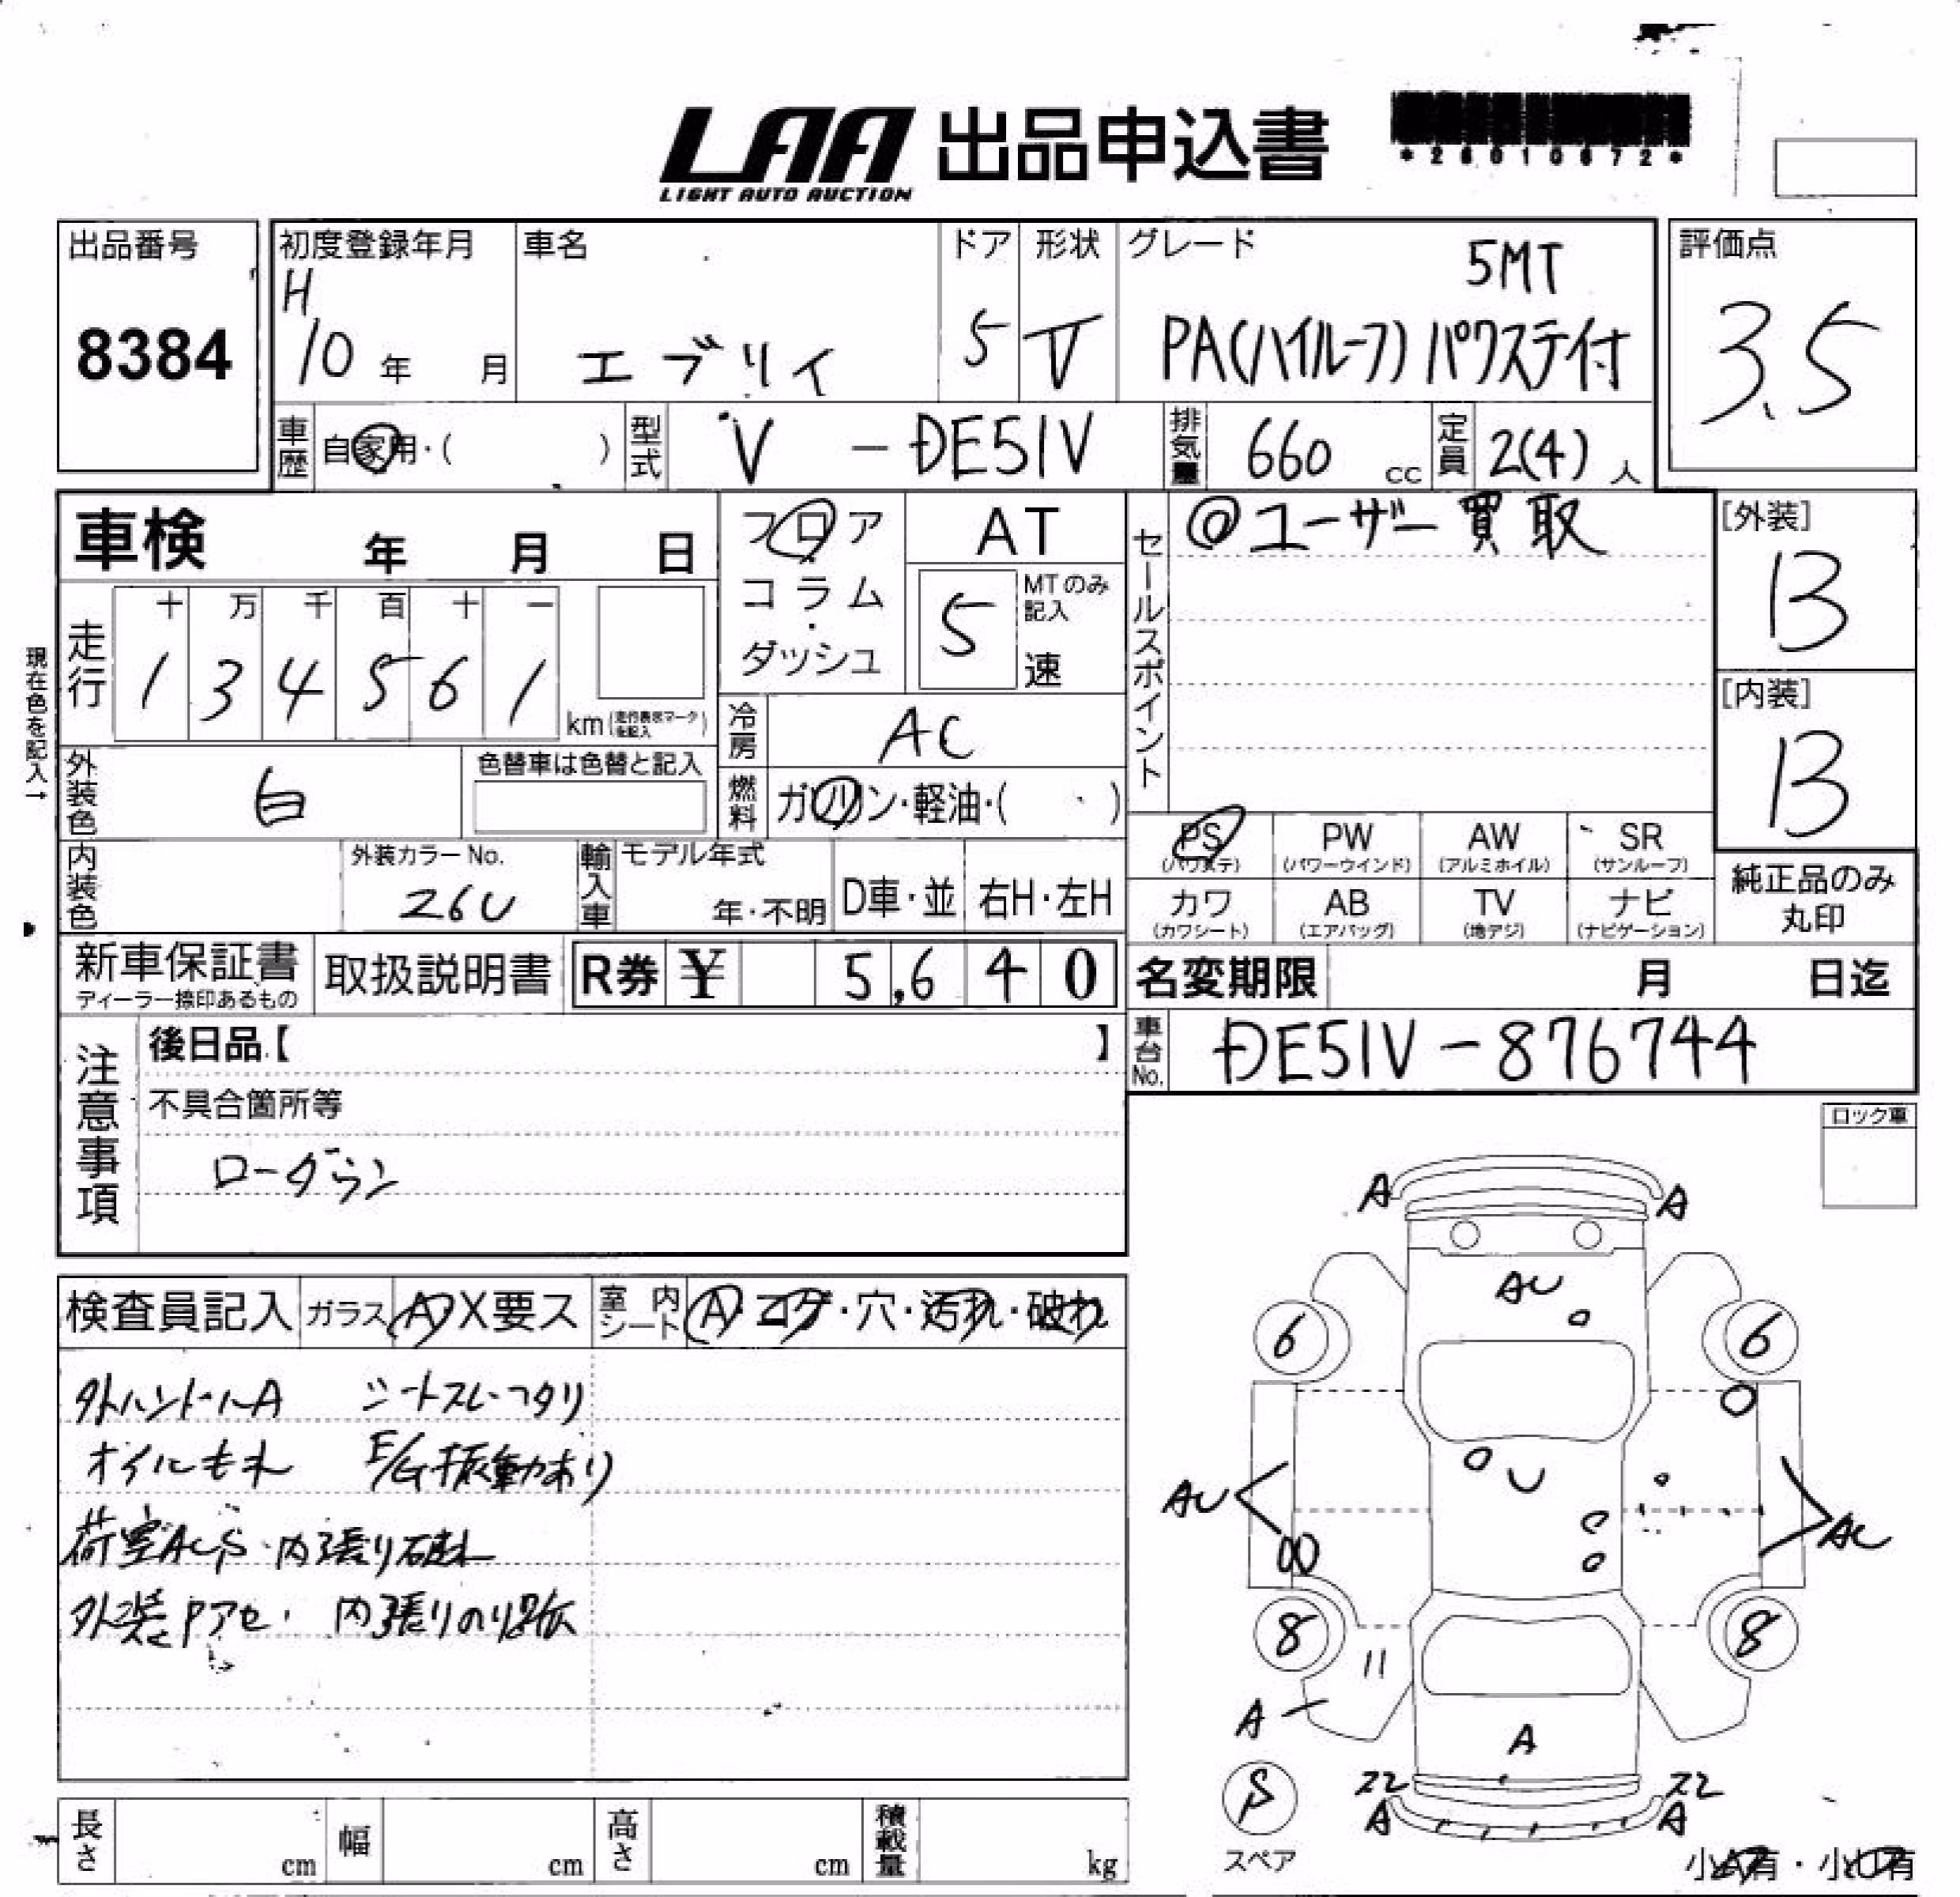 LAA 出品申込書
LIGHT AUTO AUCTION
*26010672*
出品番号
8384
初度登録年月
H
10 年 月
車名
エブリイ
ドア
5
形状
V
グレード
5MT
PA(ハイルーフ) パワステ付
評価点
3.5
車歴 自家用・( )
型式 V - DE51V
排気量 660 cc
定員 2(4) 人
車検 年 月 日
フロア
コラム
・
ダッシュ
AT
5 MTのみ記入 速
セールスポイント
@ユーザー買取
[外装]
B
[内装]
B
現在色を記入→
走行
十 万 千 百 十 一
1 3 4 5 6 1
km (走行表示マークを記入)
冷房 AC
外装色 白
色替車は色替と記入
燃料 ガソリン・軽油・( )
内装色
外装カラーNo.
26U
輸入車
モデル年式
年・不明
D車・並
右H・左H
PS
(パワステ)
PW
(パワーウインド)
AW
(アルミホイル)
SR
(サンルーフ)
カワ
(カワシート)
AB
(エアバッグ)
TV
(地デジ)
ナビ
(ナビゲーション)
純正品のみ
丸印
新車保証書
ディーラー捺印あるもの
取扱説明書
R券 ¥ 5,640
名変期限 月 日迄
車台No. DE51V-876744
注意事項
後日品【 】
不具合箇所等
ローダウン
ロック車
検査員記入
ガラス A X要ス
室内シート A・コゲ・穴・汚れ・破れ
外ハンドルA シートスレ・ヘタリ
オイルもれ E/G振動あり
荷室ACS・内張り破れ
外装Pアセ・ 内張りのり跡
A A
AU
6 6
U
AU
AC
8 8
A
A
S
スペア
22 22
A A
小A有・小U有
長さ cm
幅 cm
高さ cm
積載量 kg